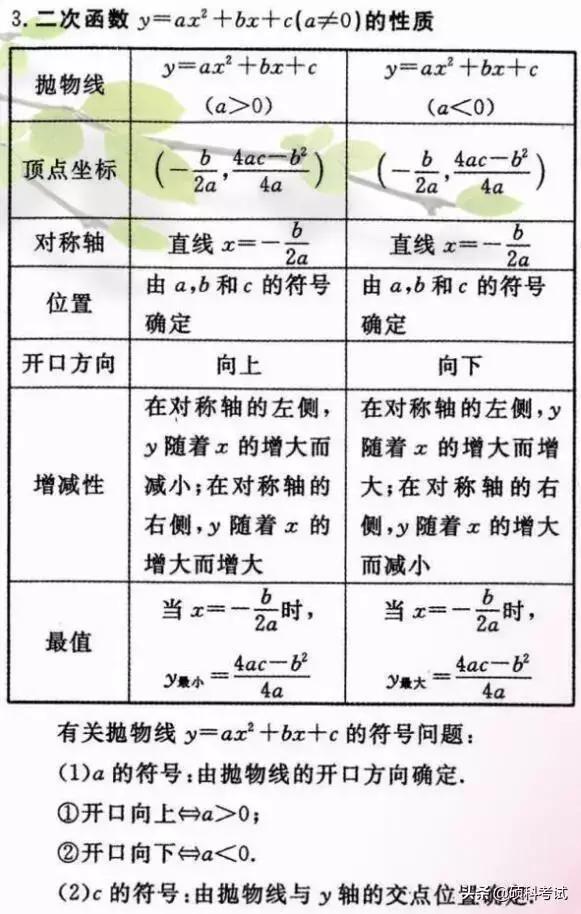 3.二次函数 y=ax²+bx+c(a≠0)的性质
抛物线 y=ax²+bx+c (a>0) y=ax²+bx+c (a<0)
顶点坐标 (-b/2a, 4ac-b²/4a) (-b/2a, 4ac-b²/4a)
对称轴 直线 x=-b/2a 直线 x=-b/2a
位置 由 a,b 和 c 的符号 由 a,b 和 c 的符号
确定 确定
开口方向 向上 向下
增减性
在对称轴的左侧,
y 随着 x 的增大而
减小;在对称轴的
右侧,y 随着 x 的
增大而增大
在对称轴的左侧,y
随着 x 的增大而增
大;在对称轴的右
侧,y 随着 x 的增大
而减小
最值
当 x=-b/2a时,
y最小=4ac-b²/4a
当 x=-b/2a时,
y最大=4ac-b²/4a
有关抛物线 y=ax²+bx+c 的符号问题:
(1)a 的符号:由抛物线的开口方向确定.
①开口向上⇔a>0;
②开口向下⇔a<0.
(2)c 的符号:由抛物线与 y 轴的交点位置确定.
头条@硕科考试